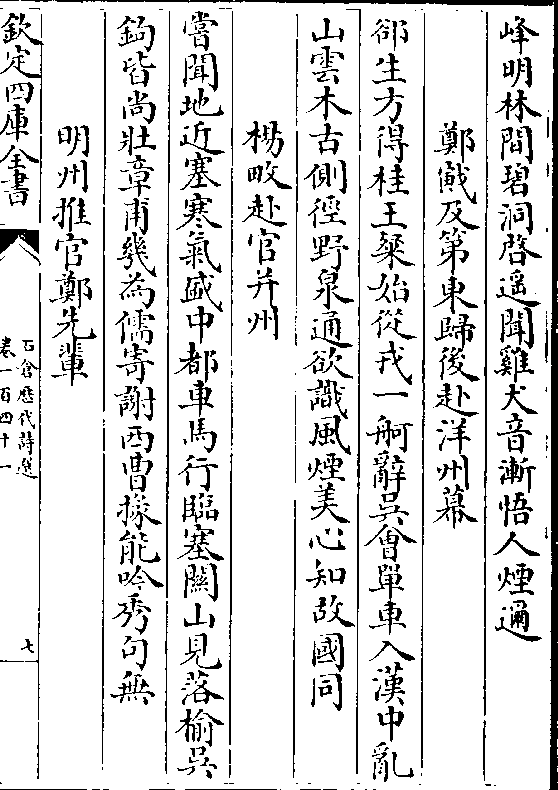 峰明林間碧洞啓遥聞雞犬音漸悟人煙邇
鄭戢及第東歸後赴洋州幕
郤生方得桂王粲始從戎一舸辭吳會單車入漢中亂
山雲木古側徑野泉通欲識風煙美心知故國同
楊畋赴官并州
嘗聞地近塞寒氣盛中都車馬行臨塞關山見落榆吳
鉤皆尚壯章甫幾為儒寄謝西曹掾能吟秀句無
明州推官鄭先輩
欽定四庫全書
石倉歷代詩選
卷一百四十一
七